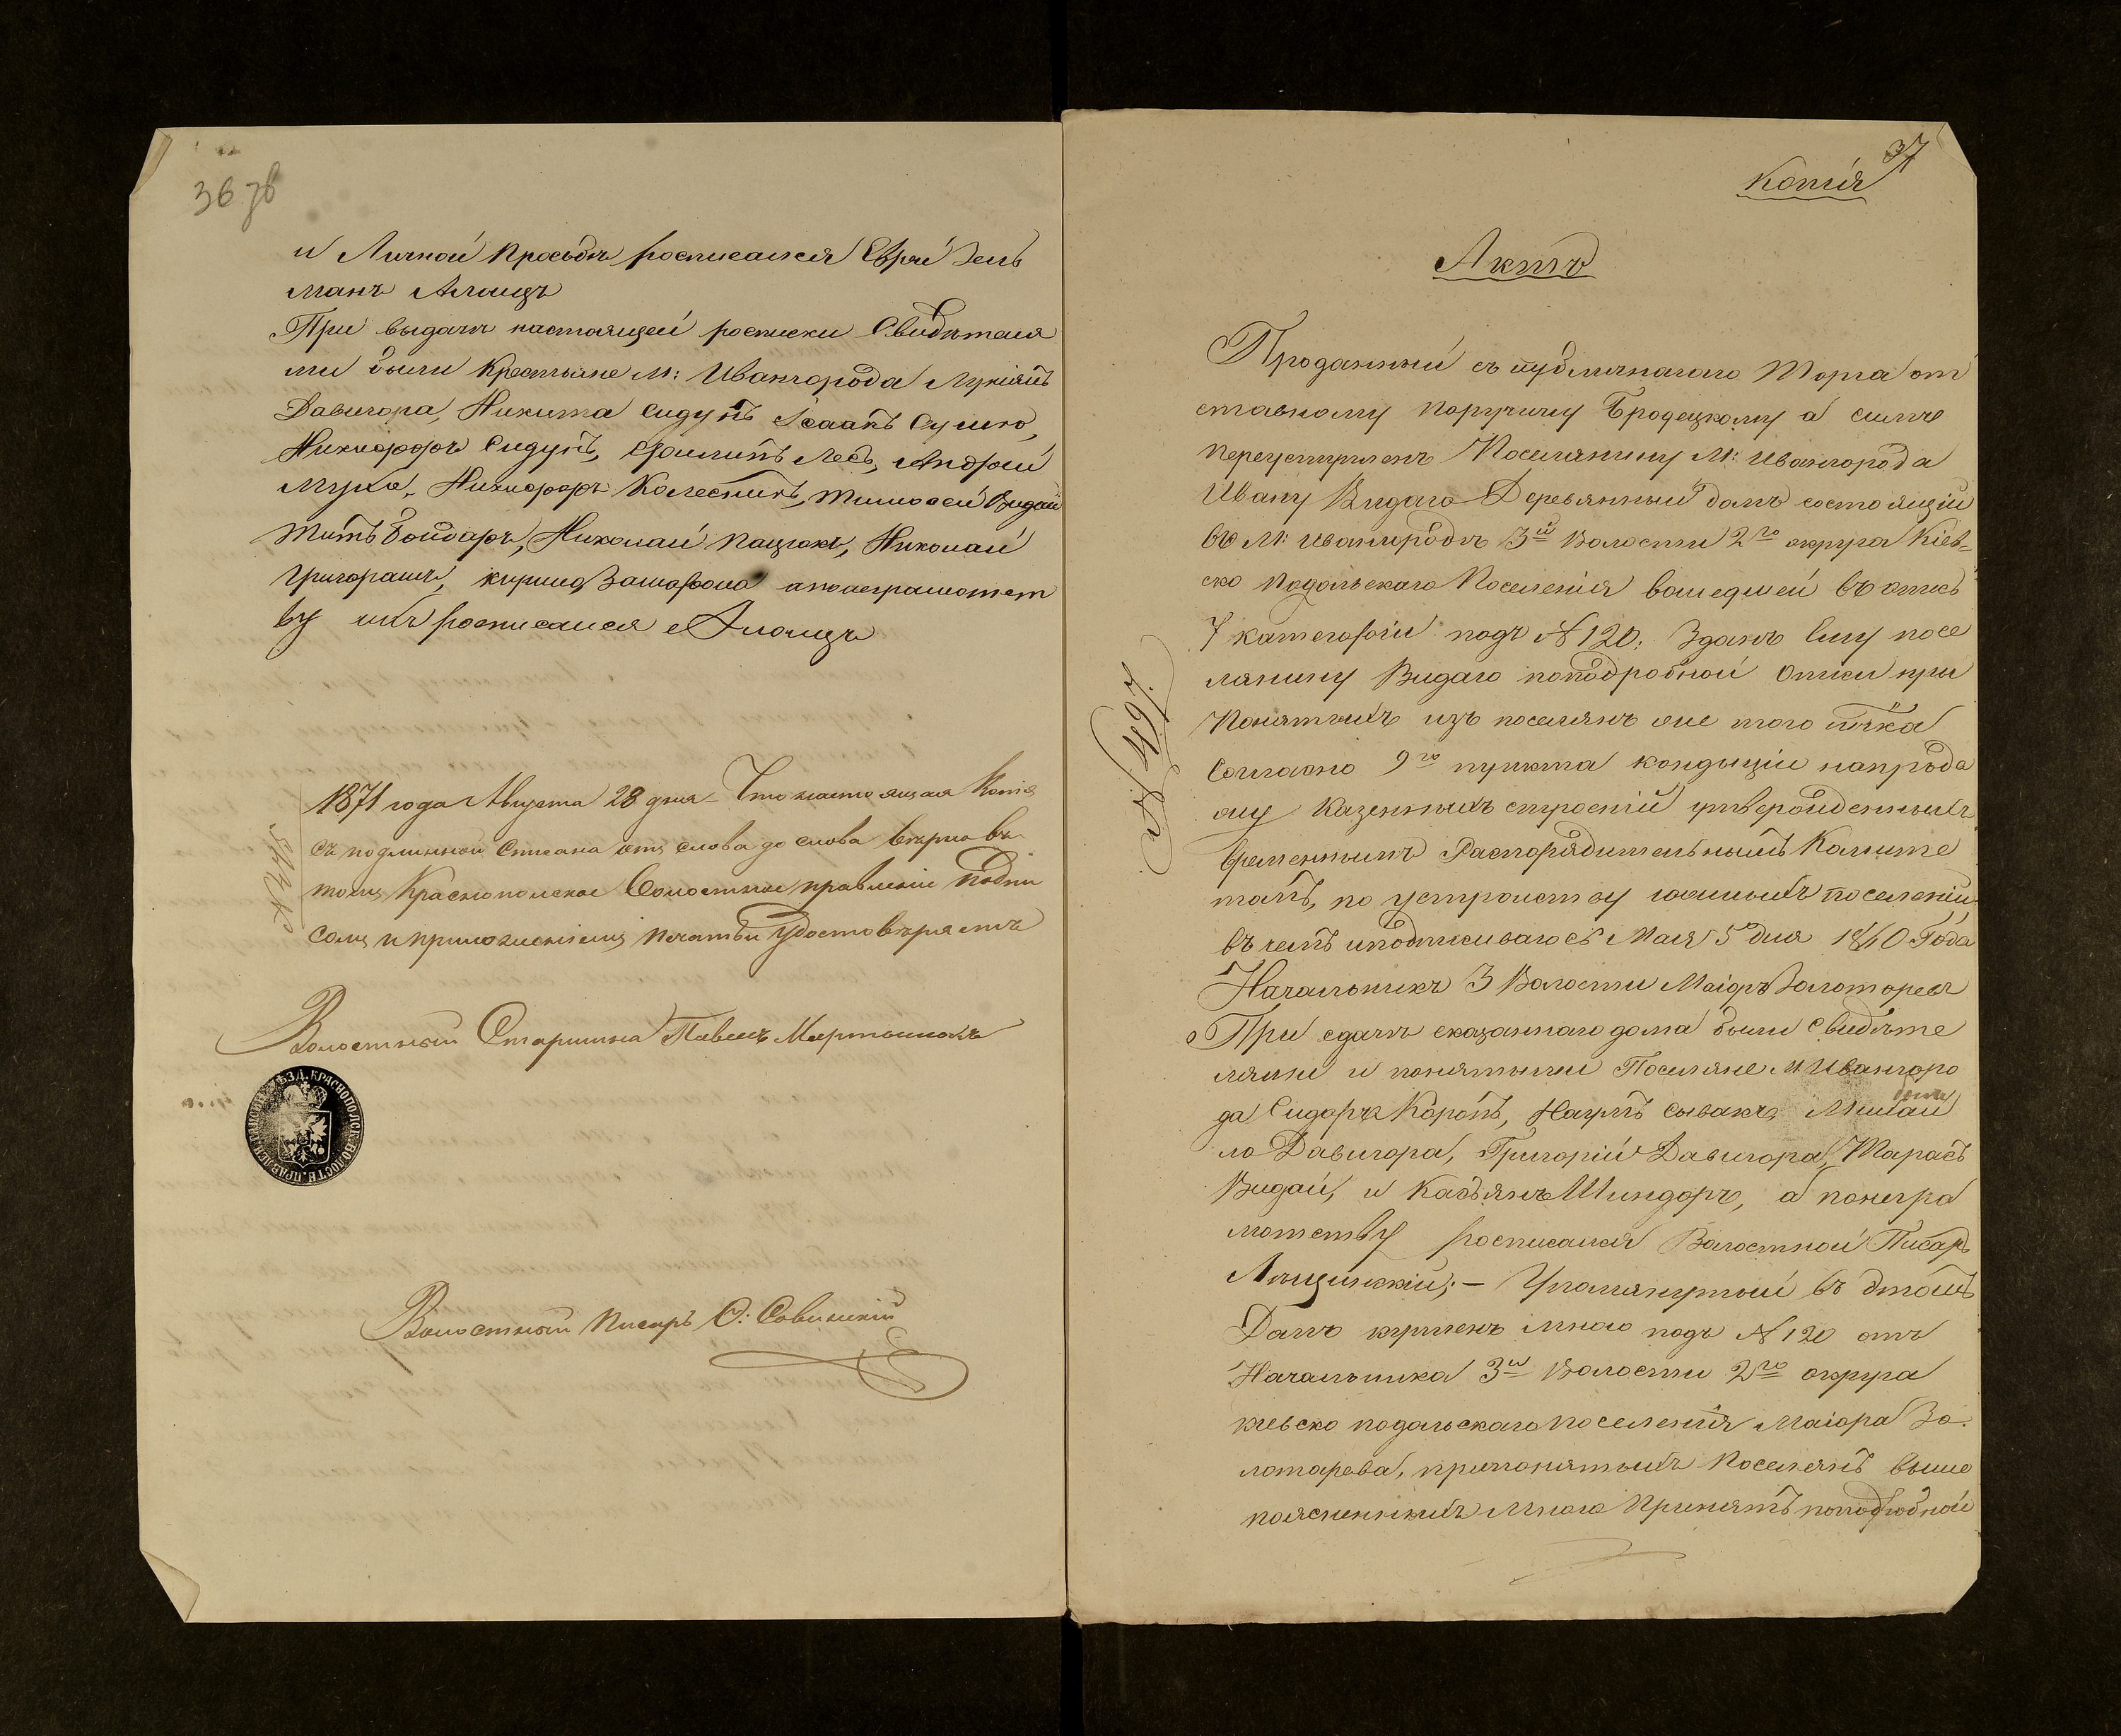 36 зв
и Личной просьбѣ росписался Еврей Зель
манъ
При выдачѣ настоящей росписки Свидѣтеля
ми были Крестьяне М: Ивангорода Лукіянъ
Давигора, Никита Сидунъ Ісаакъ Сушко,
Никифоръ Сидунъ, Филипъ Лесь, Андрей
Муха, Никифоръ Колесникъ, Тимофей Видай
Титъ Бондаръ, Николай Пацюкъ, Николай
Григорашъ, Кирило а понеграмотст
ву ихъ росписался
1871 года Августа 28 дня – Что настоящая Копія
съ подлинной списана отъ слова до слова вѣрно въ
томъ Краснопольское Волостное правленіе подпи
сомъ и приложеніемъ печати удостовѣряетъ
Волостный Старшина Павелъ Мартынюкъ
ГАЙСИНСК. УѢЗД. КРАСНОПОЛЬСК. ВОЛОСТН. ПРАВЛЕН.
Волостный Писарь О: Савинскій
37
Копія
Актъ
Проданный съ публичнаго Торга от
ставному Поручику Бродецкому а симъ
переуступленъ Поселянину М: Ивангорода
Ивану Видаю Деревянный домъ состоящій
въ М: Ивангородѣ 3й Волости 2го округа Кіев=
ско Подольскаго Поселенія вошедшей въ опись
7 категоріи подъ № 120; Зданъ Ему посе
лянину Видаю поподробной Описи при
Понятыхъ изъ поселянъ оне того
Согласно 9го пункта кондыціи напрода
жу Казенныхъ строеній утвержденныхъ
временнымъ Распорядительнымъ Комите
томъ, по устройству военныхъ поселеній
въ чемъ иподписываюсь Мая 5 дня 1840 Года
Начальникъ 3 Волости Маіоръ Золотаревъ
При сдачѣ сказаннаго дома были Свидѣте
лями и понятыми Поселяне М Ивангоро
да Сидоръ Коропъ, Наумъ Сывакъ, Михай
ло Давигора, Григорій Давигора, Тарасъ
Видай, и Касьянъ Шиндоръ, а понегра
мотству росписался Волостной Писарь
Лящинскій; – Упомянутый въ этомъ
Домъ купленъ мною подъ № 120 отъ
Начальника 3й Волости 2го округа
кіевско подольскаго поселенія Маіора Зо
лотарева, припонятыхъ Поселянъ выше
поясненныхъ мною Принятъ поподробной
№ 497.